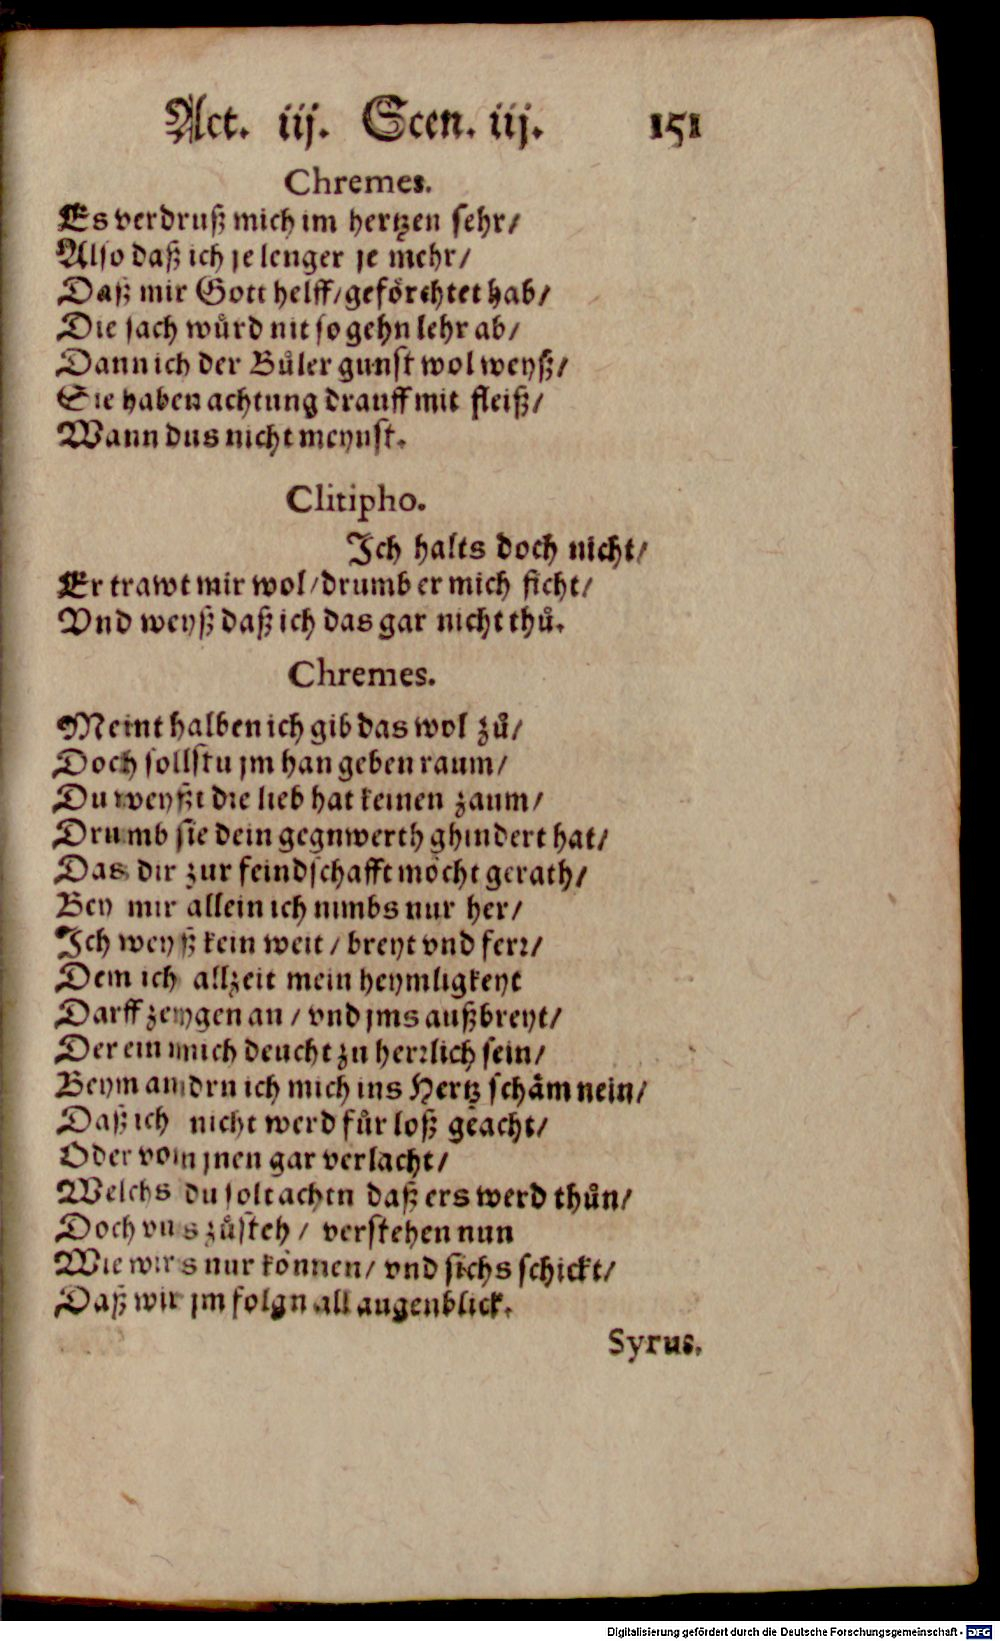 Act. iij. Scen. iij. 151
Chremes.
Es verdruß mich im hertzen sehr/
Also daß ich je lenger je mehr/
Daß mir Gott helff/geförchtet hab/
Die sach wuͤrd nit so gehn lehr ab/
Dann ich der Buͤler gunst wol weyß/
Sie haben achtung drauff mit fleiß/
Wann dus nicht meynst.
Clitipho.
Ich halts doch nicht/
Er trawt mir wol/drumb er mich ficht/
Vnd weyß daß ich das gar nicht thuͦ.
Chremes.
Meint halben ich gib das wol zuͦ/
Doch sollstu jm han geben raum/
Du weyßt die lieb hat keinen zaum/
Drumb sie dein gegnwerth ghindert hat/
Das dir zur feindschafft möcht gerath/
Bey mir allein ich nimbs nur her/
Ich weyß kein weit/ breyt vnd ferr/
Dem ich allzeit mein heymligkeyt
Darff zeygen an/ vnd jms außbreyt/
Der ein mich deucht zu herrlich sein/
Beym andrn ich mich ins Hertz schäm nein/
Daß ich nicht werd fuͤr loß geacht/
Oder vom jnen gar verlacht/
Welchs du solt achtn daß ers werd thuͦn/
Doch vns zuͦsteh/ verstehen nun
Wie wirs nur können/ vnd sichs schickt/
Daß wir jm folgn all augenblick.
Syrus.
Digitalisierung gefördert durch die Deutsche Forschungsgemeinschaft - DFG